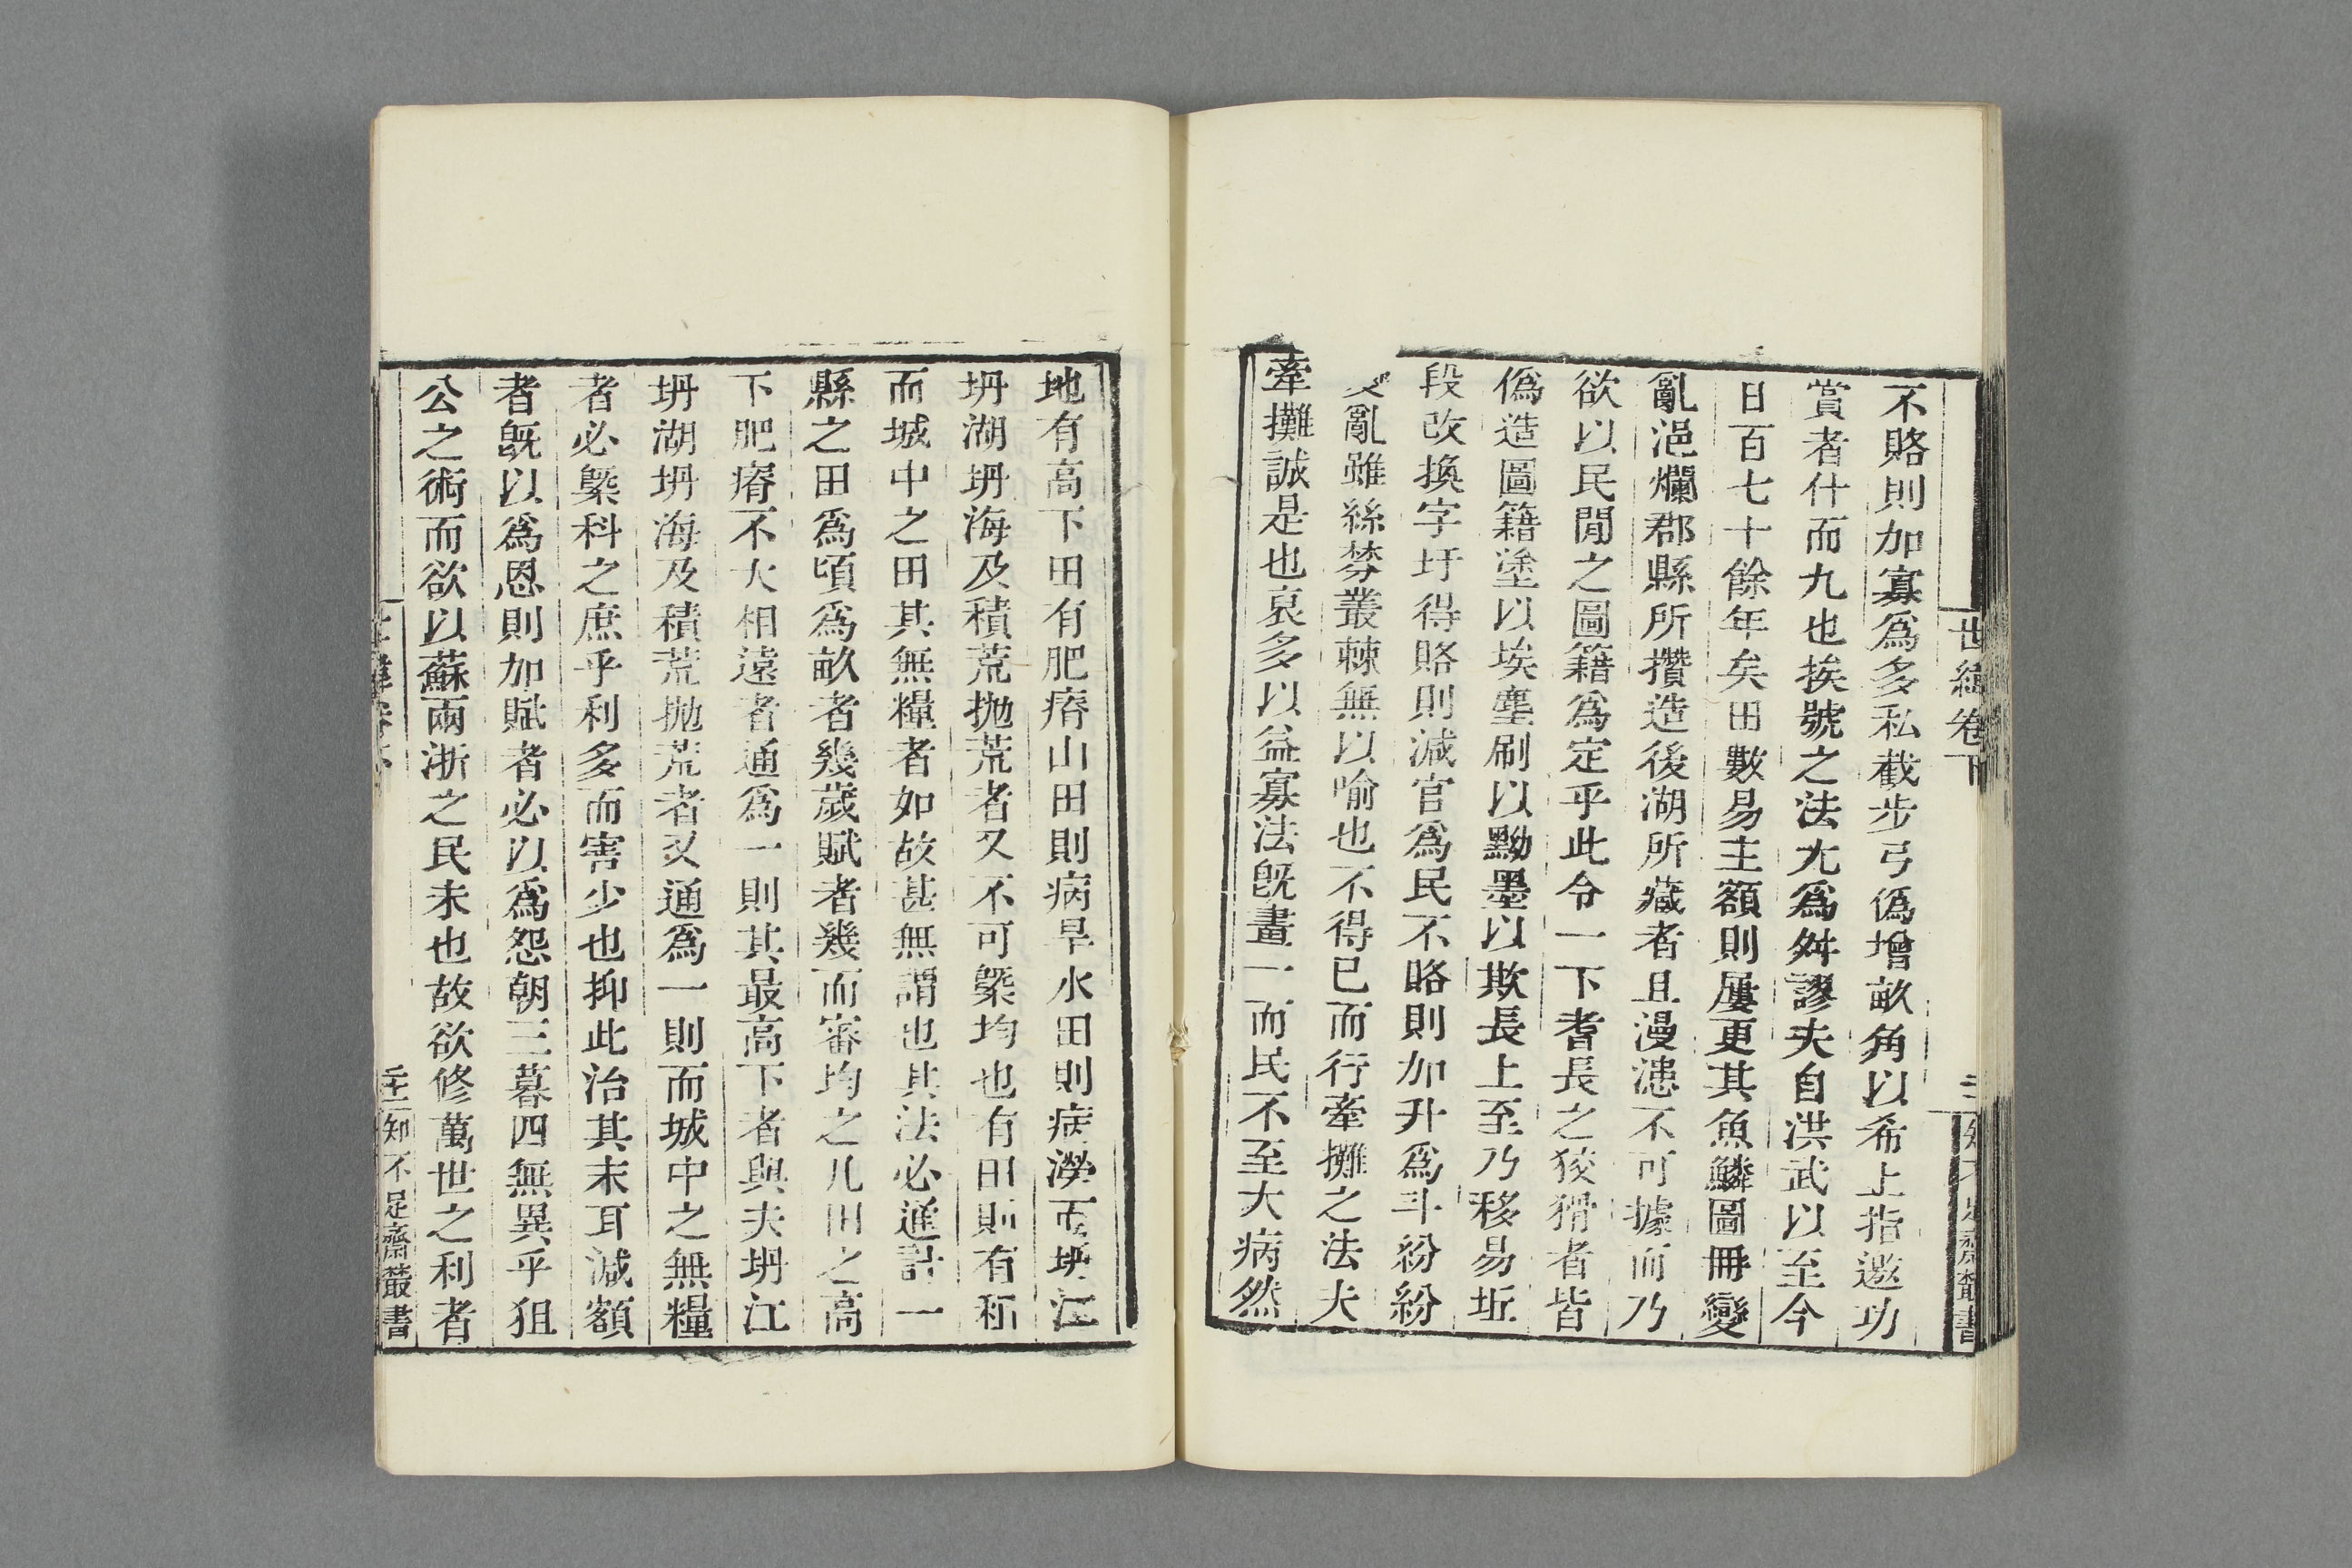 世緯卷下
不賂則加寡爲多私截步弓僞增畝角以希上指邀功
賞者什而九也挨號之法尤爲舛謬夫自洪武以至今
日百七十餘年矣田數易主額則屢更其魚鱗圖冊變
亂浥爛郡縣所攢造後湖所藏者且漫漶不可據而乃
欲以民閒之圖籍爲定乎此令一下耆長之狡猾者皆
僞造圖籍塗以埃塵刷以黝墨以欺長上至乃移易坵
段改換字圩得賂則減官爲民不賂則加升爲斗紛紛
亂雖絲棼叢棘無以喻也不得已而行牽攤之法夫
牽攤誠是也裒多以益寡法旣畫一而民不至大病然
地有高下田有肥瘠山田則病旱水田則病澇而坍江
坍湖坍海及積荒拋荒者又不可槩均也有田則有稅
而城中之田其無糧者如故甚無謂也其法必通計一
縣之田爲頃爲畝者幾歲賦者幾而審均之凡田之高
下肥瘠不大相遠者通爲一則其最高下者與夫坍江
坍湖坍海及積荒拋荒者又通爲一則而城中之無糧
者必槩科之庶乎利多而害少也抑此治其末耳減額
者旣以爲恩則加賦者必以爲怨朝三暮四無異乎狙
公之術而欲以蘇兩浙之民未也故欲修萬世之利者
知不足齋叢書